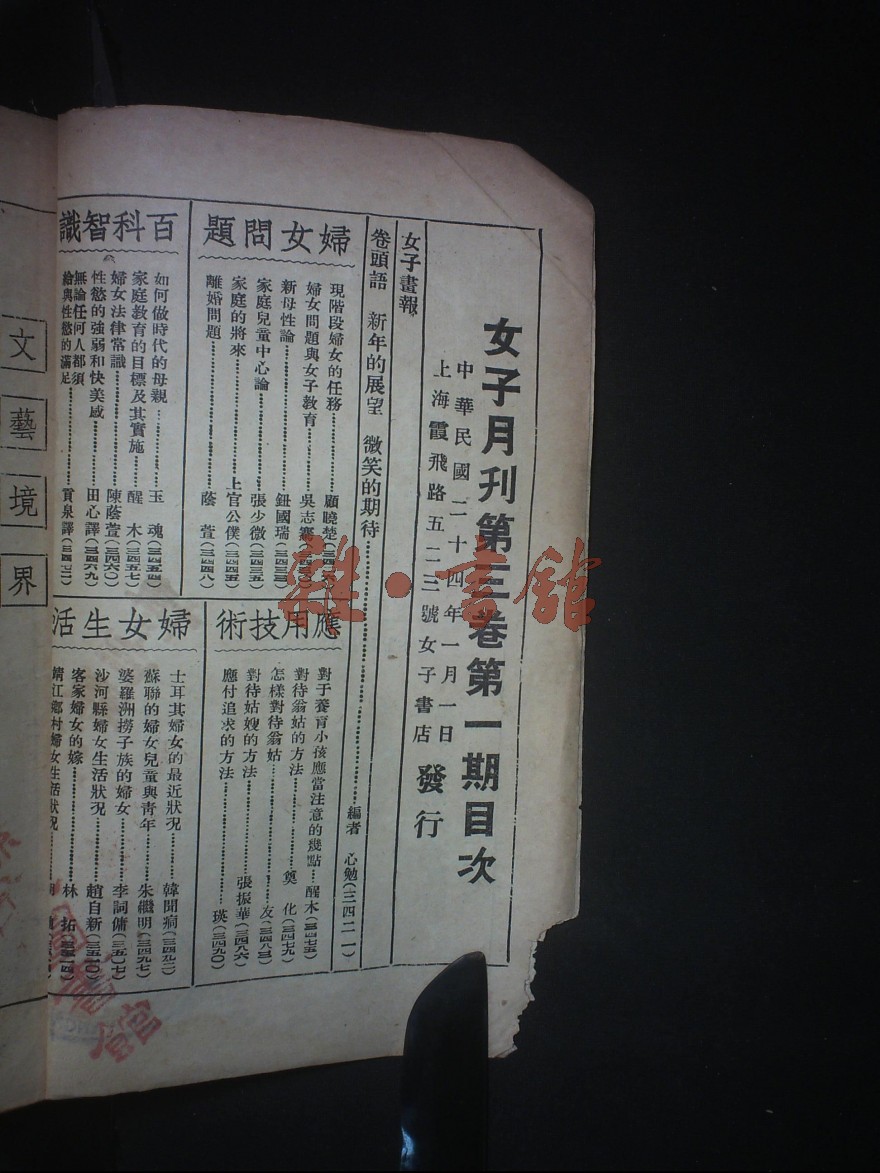 女子月刊第三卷第一期目次
中華民國二十四年一月一日
上海霞飛路五二三號女子書店 發行
女子畫報
卷頭語 新年的展望 微笑的期待 編者 心勉(三四二一)
婦女問題
現階段婦女的任務 顧曉楚
婦女問題與女子教育 吳志騫
新母性論 鈕國瑞
家庭兒童中心論 張少微(三四三五)
家庭的將來 上官公僕(三四四五)
離婚問題 蔭萱(三四四八)
百科智識
如何做時代的母親 玉魂(三四五四)
家庭教育的目標及其實施 醒木(三四五七)
婦女法律常識 陳蔭萱(三四六〇)
性慾的強弱和快美感 田心譯(三四六九)
無論任何人都須
給與性慾的滿足 貢泉譯
應用技術
對于養育小孩應當注意的幾點 醒木(三四七五)
對待翁姑的方法 奠化(三四七九)
怎樣對待翁姑 友(三四八三)
對待姑嫂的方法 張振華(三四八六)
應付追求的方法 瑛(三四九〇)
婦女生活
士耳其婦女的最近狀況 韓聞痌(三四九二)
蘇聯的婦女兒童與青年 朱繼明(三四九七)
婆羅洲撈子族的婦女 李詞傭(三五〇七)
沙河縣婦女生活狀况 趙自新(三五一〇)
客家婦女的嫁 林拓
靖江鄉村婦女生活狀况
文藝境界
雜·書館